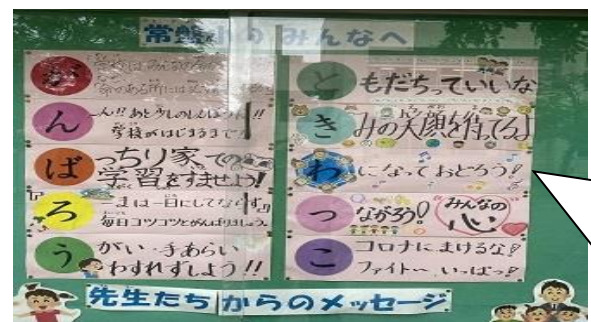 常盤小のみんなへ
が
ん あと少しのしんぼう!!
学校がはじまるまで
ばっちり家での
学習をすませよう!
ろーまは一日にしてならず
毎日コツコツとがんばりましょう
うがい・手あらい
わすれずしよう!!
ともだちっていいな
きみの笑顔を待ってるよ
わになっておどろう!
つながろう! みんなの心
こ コロナにまけるな!
ファイト〜いっぱつ!
先生たちからのメッセージ